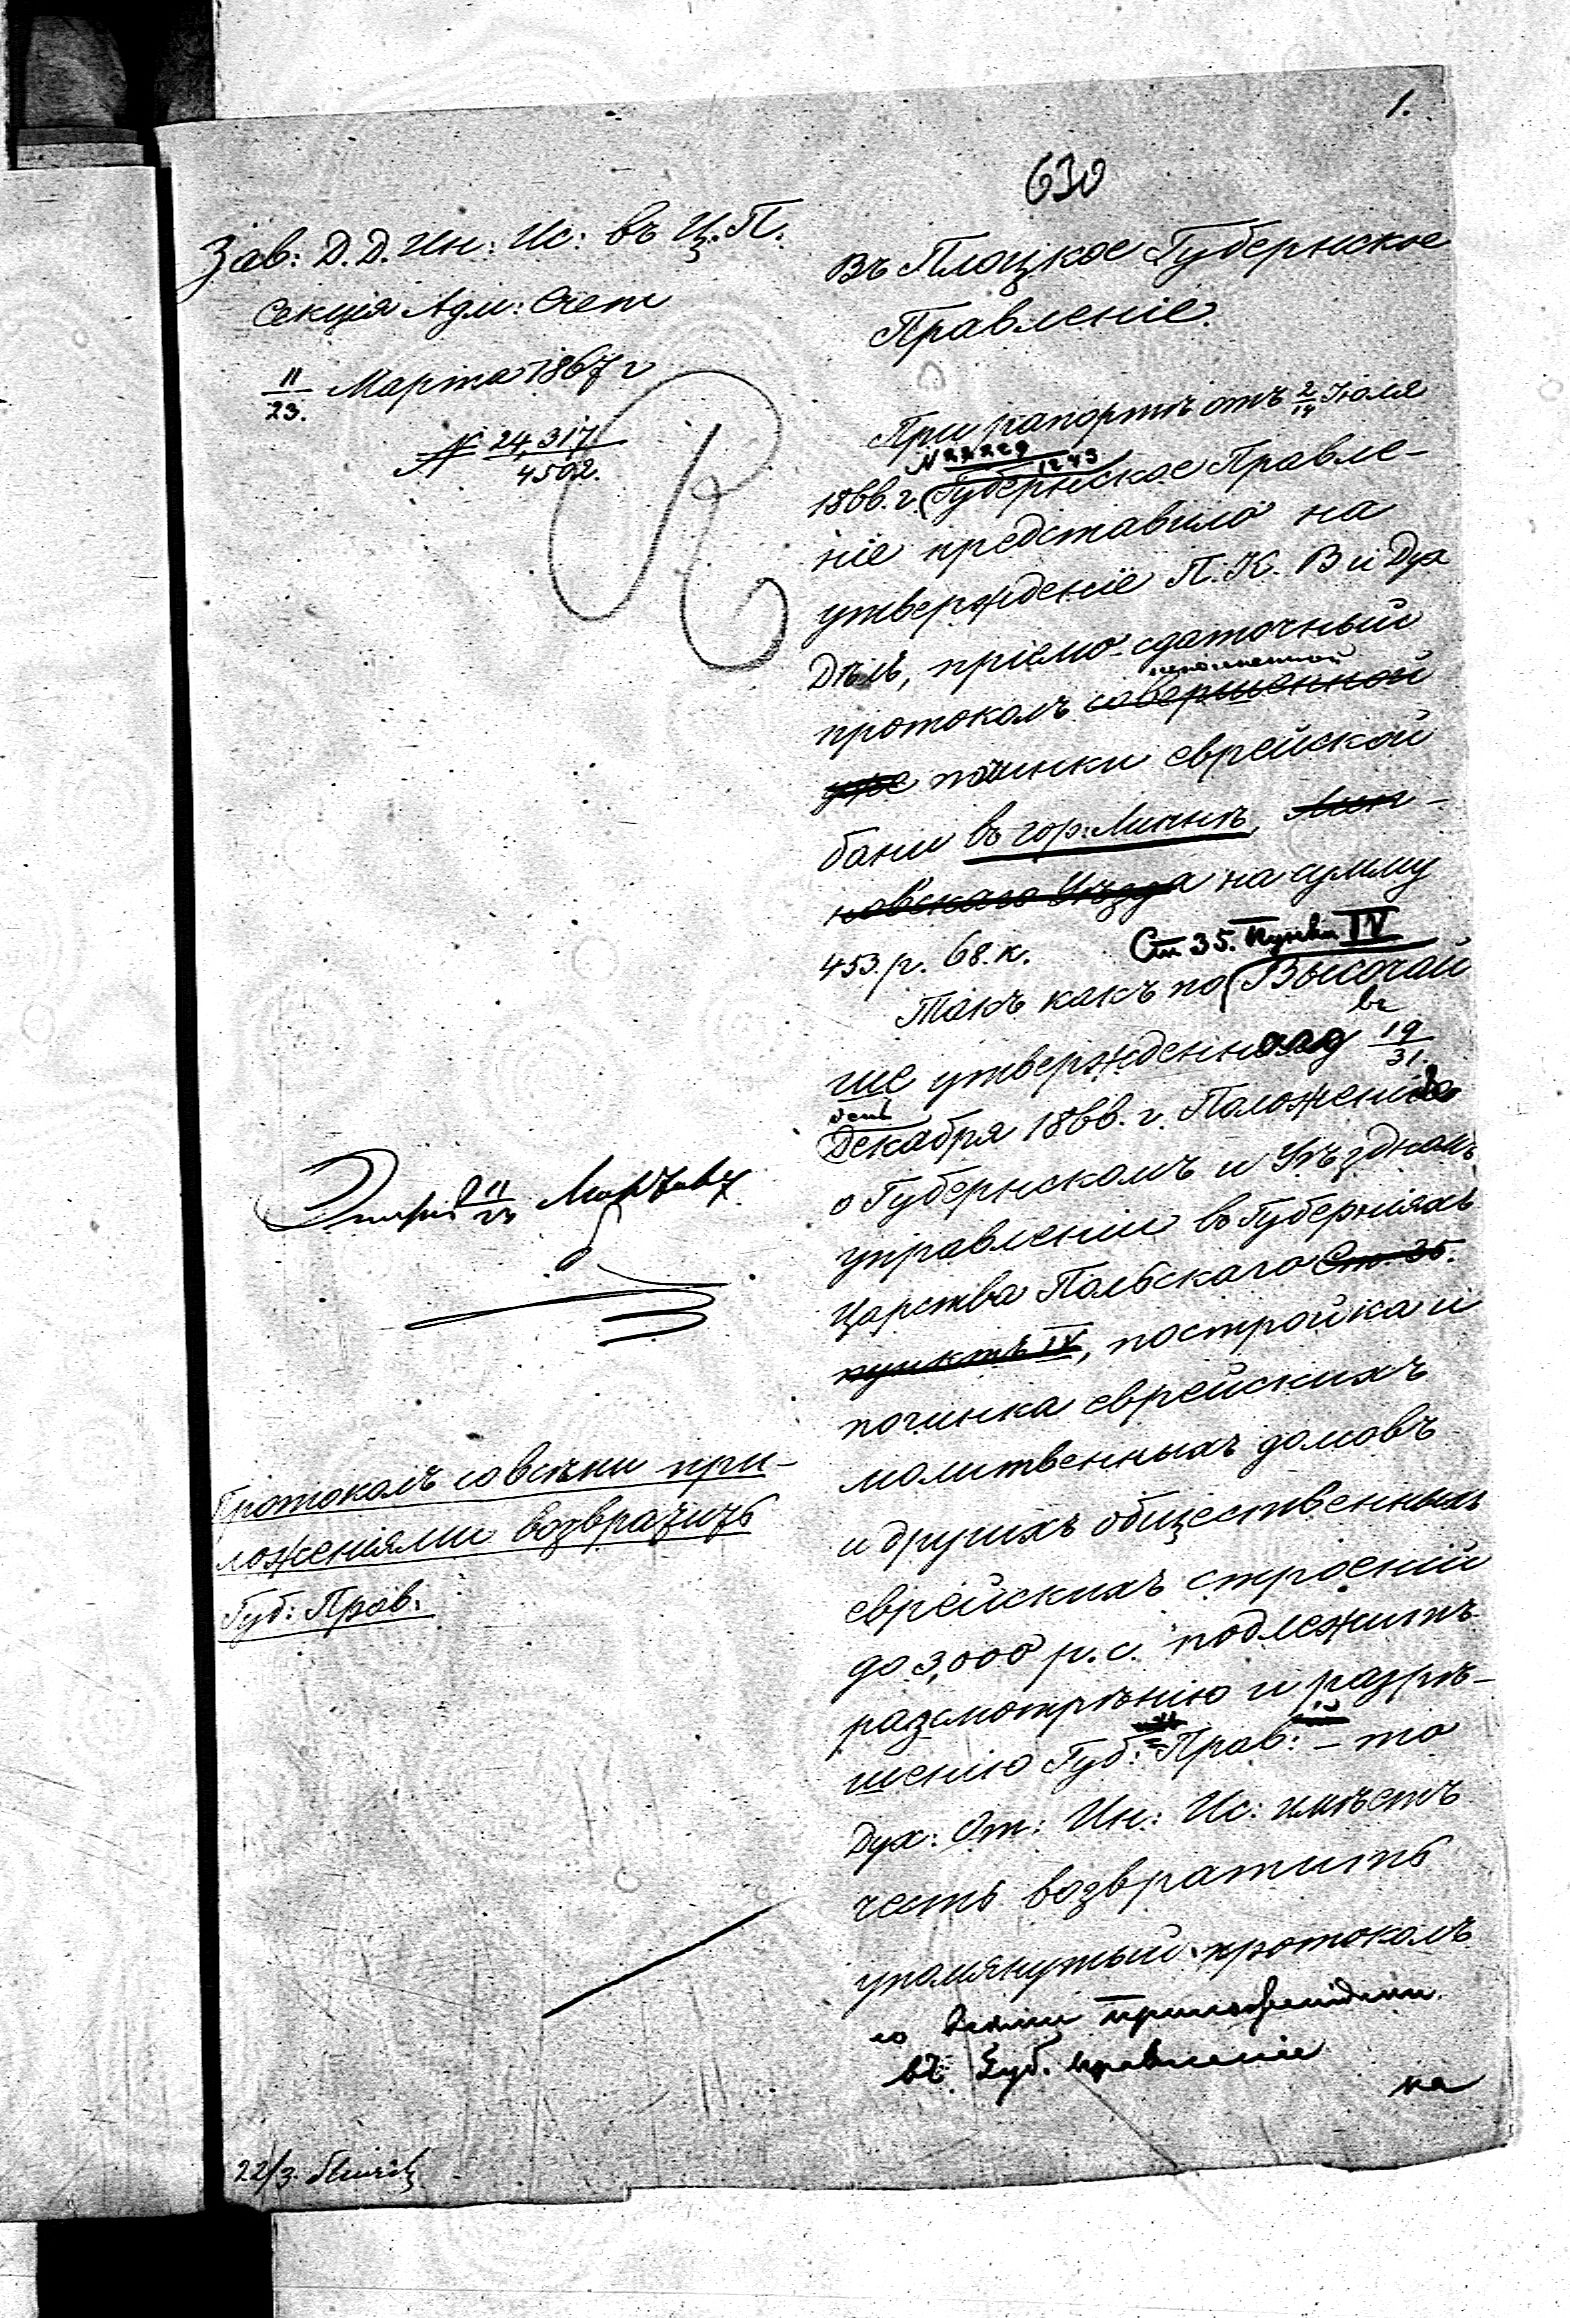 1.
630
Зав: Д. Д. Ин: Ис: въ Ц. П.
Секція Адм: Счет
11/23. Марта 1867 г
№ 24,317/4502.
Въ Плоцкое Губернское
Правленіе.
При рапортѣ отъ 2/14 Іюля
1866. г. Губернское Правле-
ніе представило на
утвержденіе П. К. В и Дух
Дѣлъ, пріемо-сдаточный
протоколъ совершенной
уже починки еврейской
бани въ гор: Липнѣ, Лип-
новскаго Уѣзда на сумму
453. р. 68. к.
Ст 35. Пункта IV
Такъ какъ по Высочай
ше утвержденному въ 19/31.
Декабря 1866. г. Положенію
о Губернскомъ и Уѣздномъ
управленіи въ Губерніяхъ
Царства Польскаго Ст. 35.
пунктъ IV, постройка и
починка еврейскихъ
молитвенныхъ домовъ
и другихъ общественныхъ
еврейскихъ строеній
до 3,000 р. с. подлежитъ
разсмотрѣнію и разрѣ-
шенію Губ: Прав: - то
Дух: От: Ин: Ис: имѣетъ
честь возвратить
упомянутый протоколъ
со всѣми приложеніями
въ Губ. правленіе
на
11/23
Протоколъ со всѣми при-
ложеніями возвратить
Губ: Прав:
22/3.